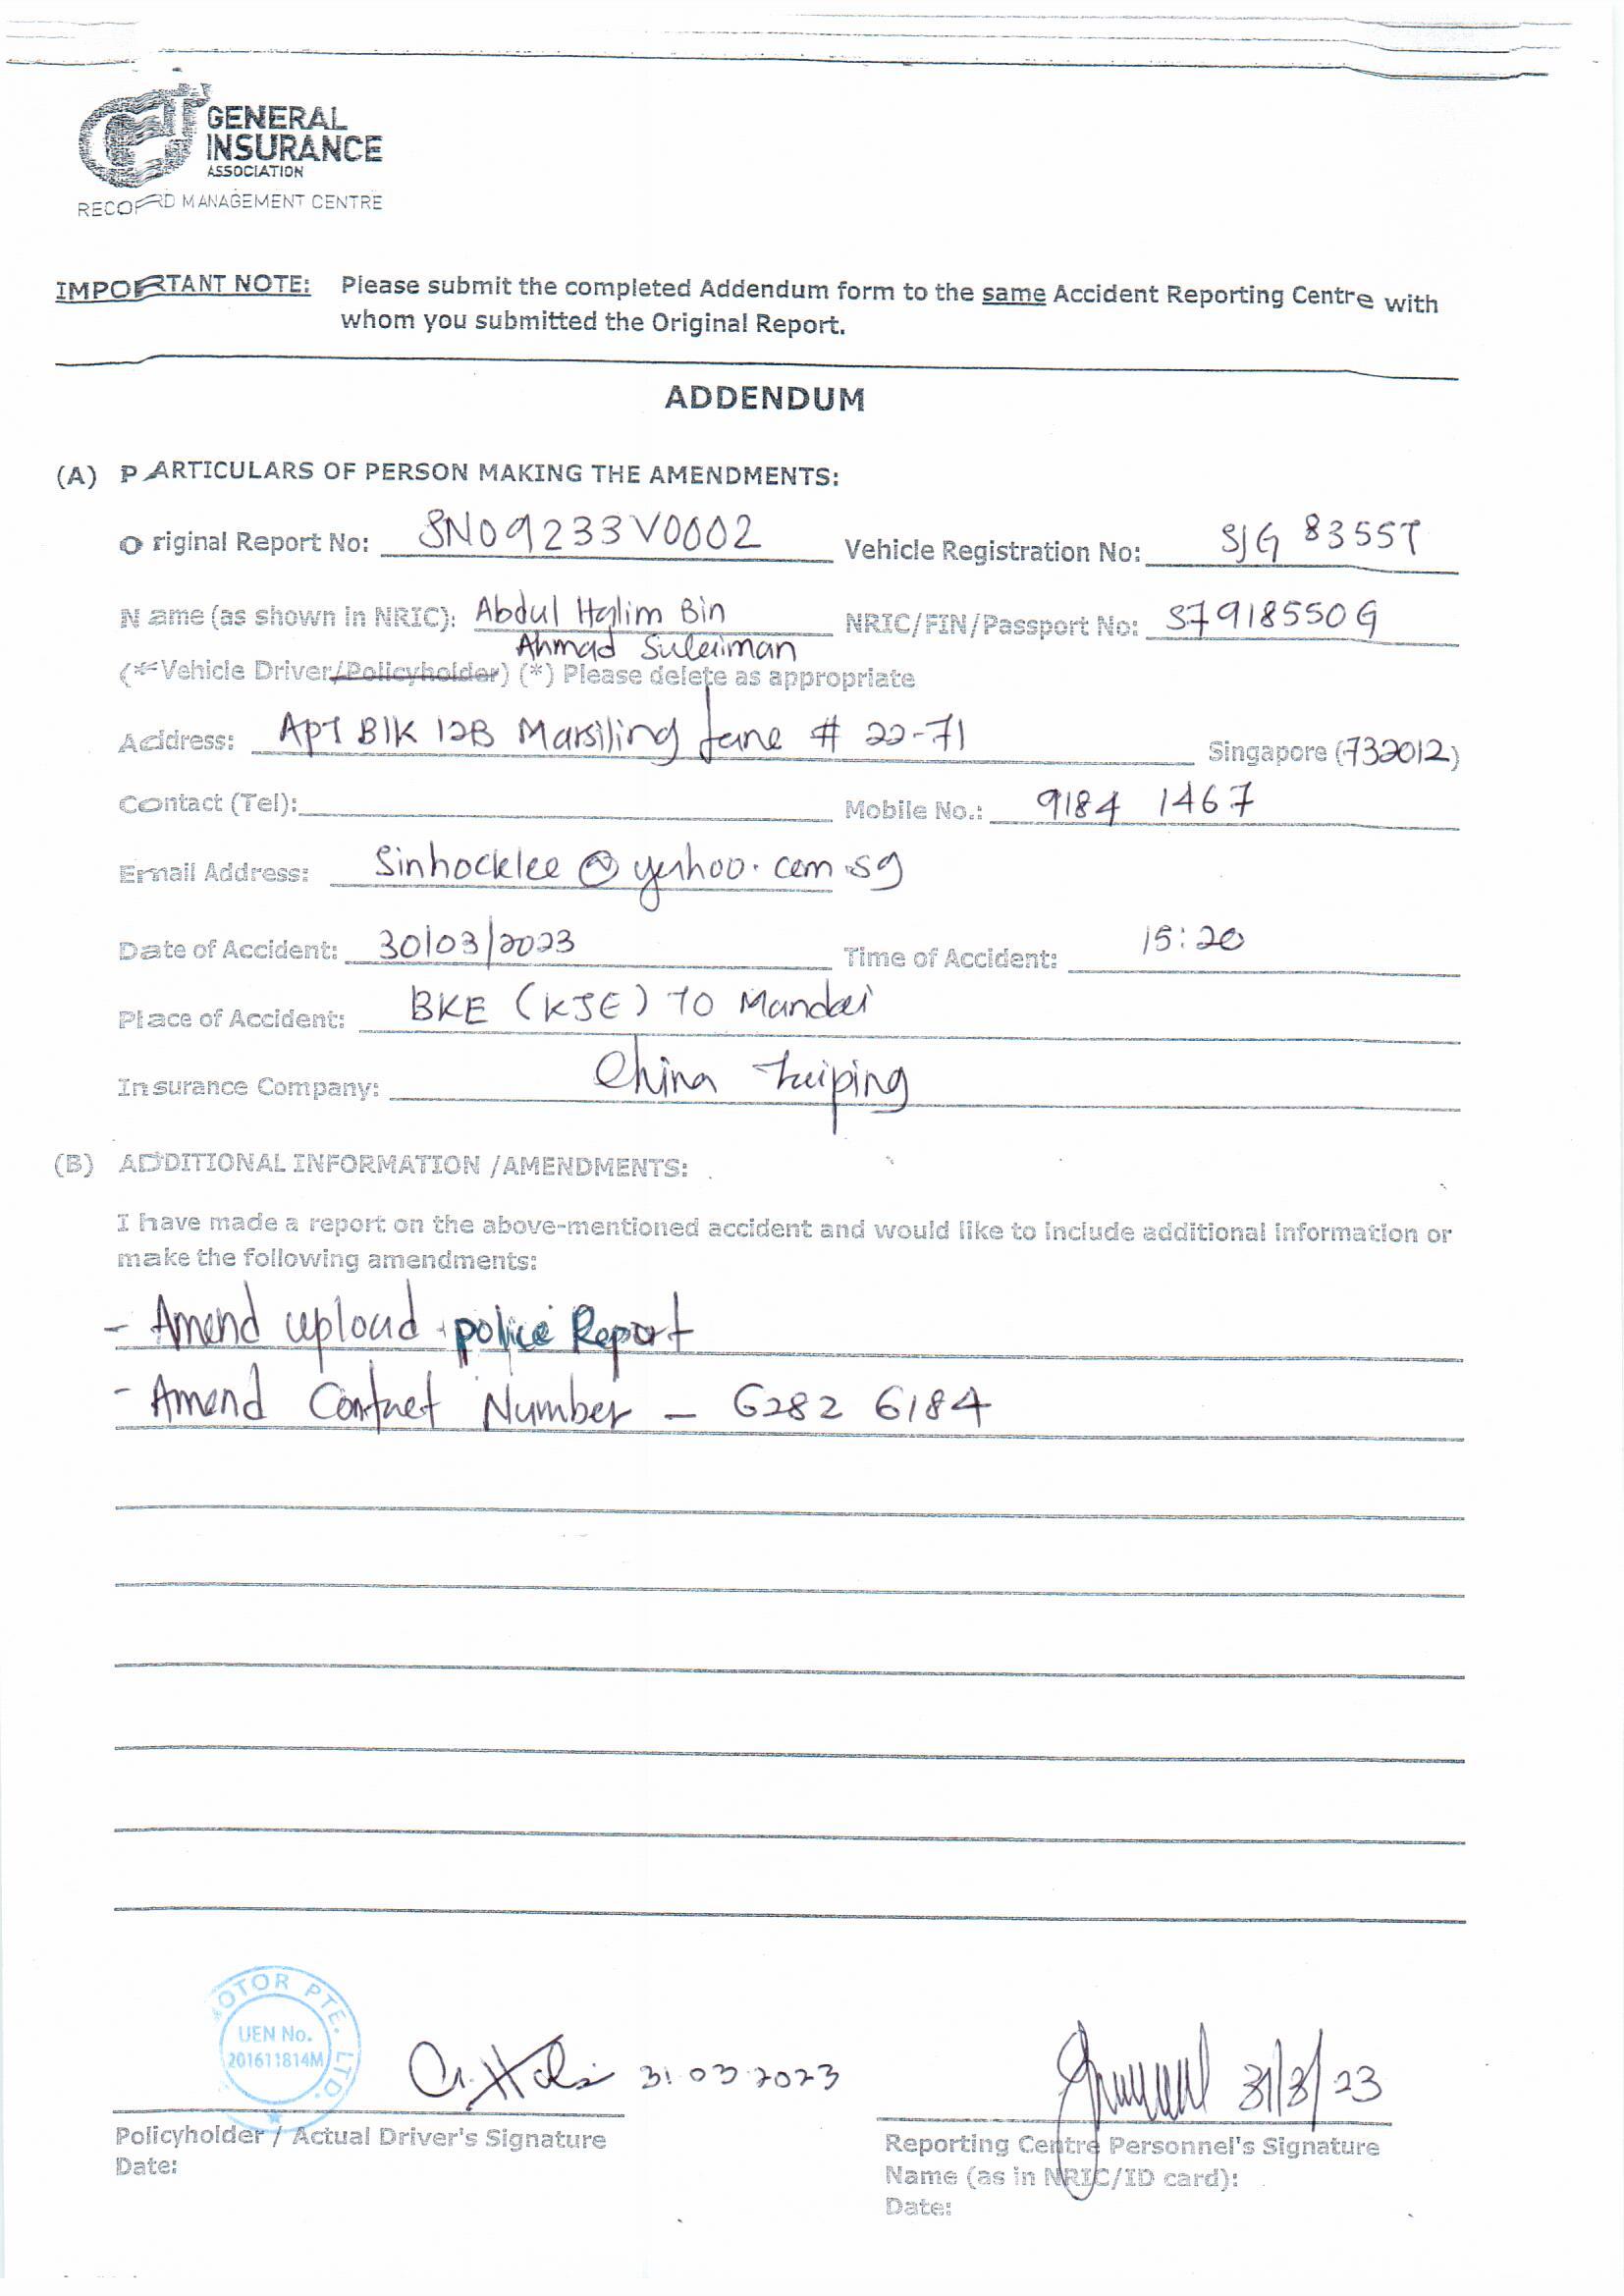 GENERAL
INSURANCE
ASSOCIATION
RECORD MANAGEMENT CENTRE
IMPORTANT NOTE: Please submit the completed Addendum form to the same Accident Reporting Centre with
whom you submitted the Original Report.
ADDENDUM
(A) PARTICULARS OF PERSON MAKING THE AMENDMENTS:
Original Report No: SN09233V0002 Vehicle Registration No: SJG 8355T
Name (as shown in NRIC): Abdul Halim Bin NRIC/FIN/Passport No: S7918550G
Ahmad Suleiman
(*Vehicle Driver/Policyholder) (*) Please delete as appropriate
Address: Apt Blk 12B Marsiling Lane # 22-71 Singapore (732012)
Contact (Tel): Mobile No.: 9184 1467
Email Address: Sinhocklee@yahoo.com.sg
Date of Accident: 30/03/2023 Time of Accident: 15:20
Place of Accident: BKE (KJE) TO Mandai
Insurance Company: China Taiping
(B) ADDITIONAL INFORMATION /AMENDMENTS:
I have made a report on the above-mentioned accident and would like to include additional information or
make the following amendments:
- Amend upload police Report
- Amend Contact Number - 6282 6184
OTOR PTE. LTD.
UEN No.
201611814M
31.03.2023
31/3/23
Policyholder / Actual Driver's Signature
Date:
Reporting Centre Personnel's Signature
Name (as in NRIC/ID card):
Date: